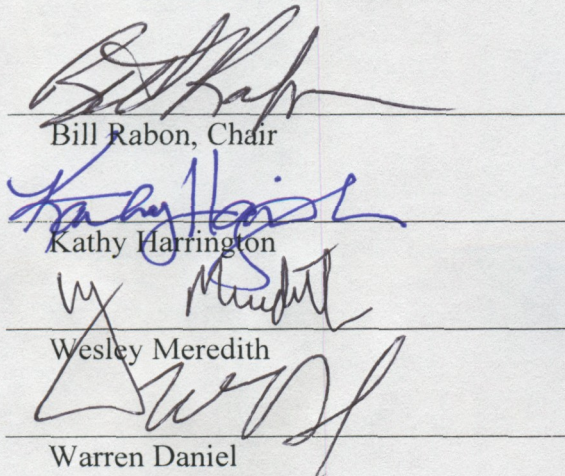 Bill Rabon
Bill Rabon, Chair
Kathy Harrington
Kathy Harrington
W Meredith
Wesley Meredith
Warren Daniel